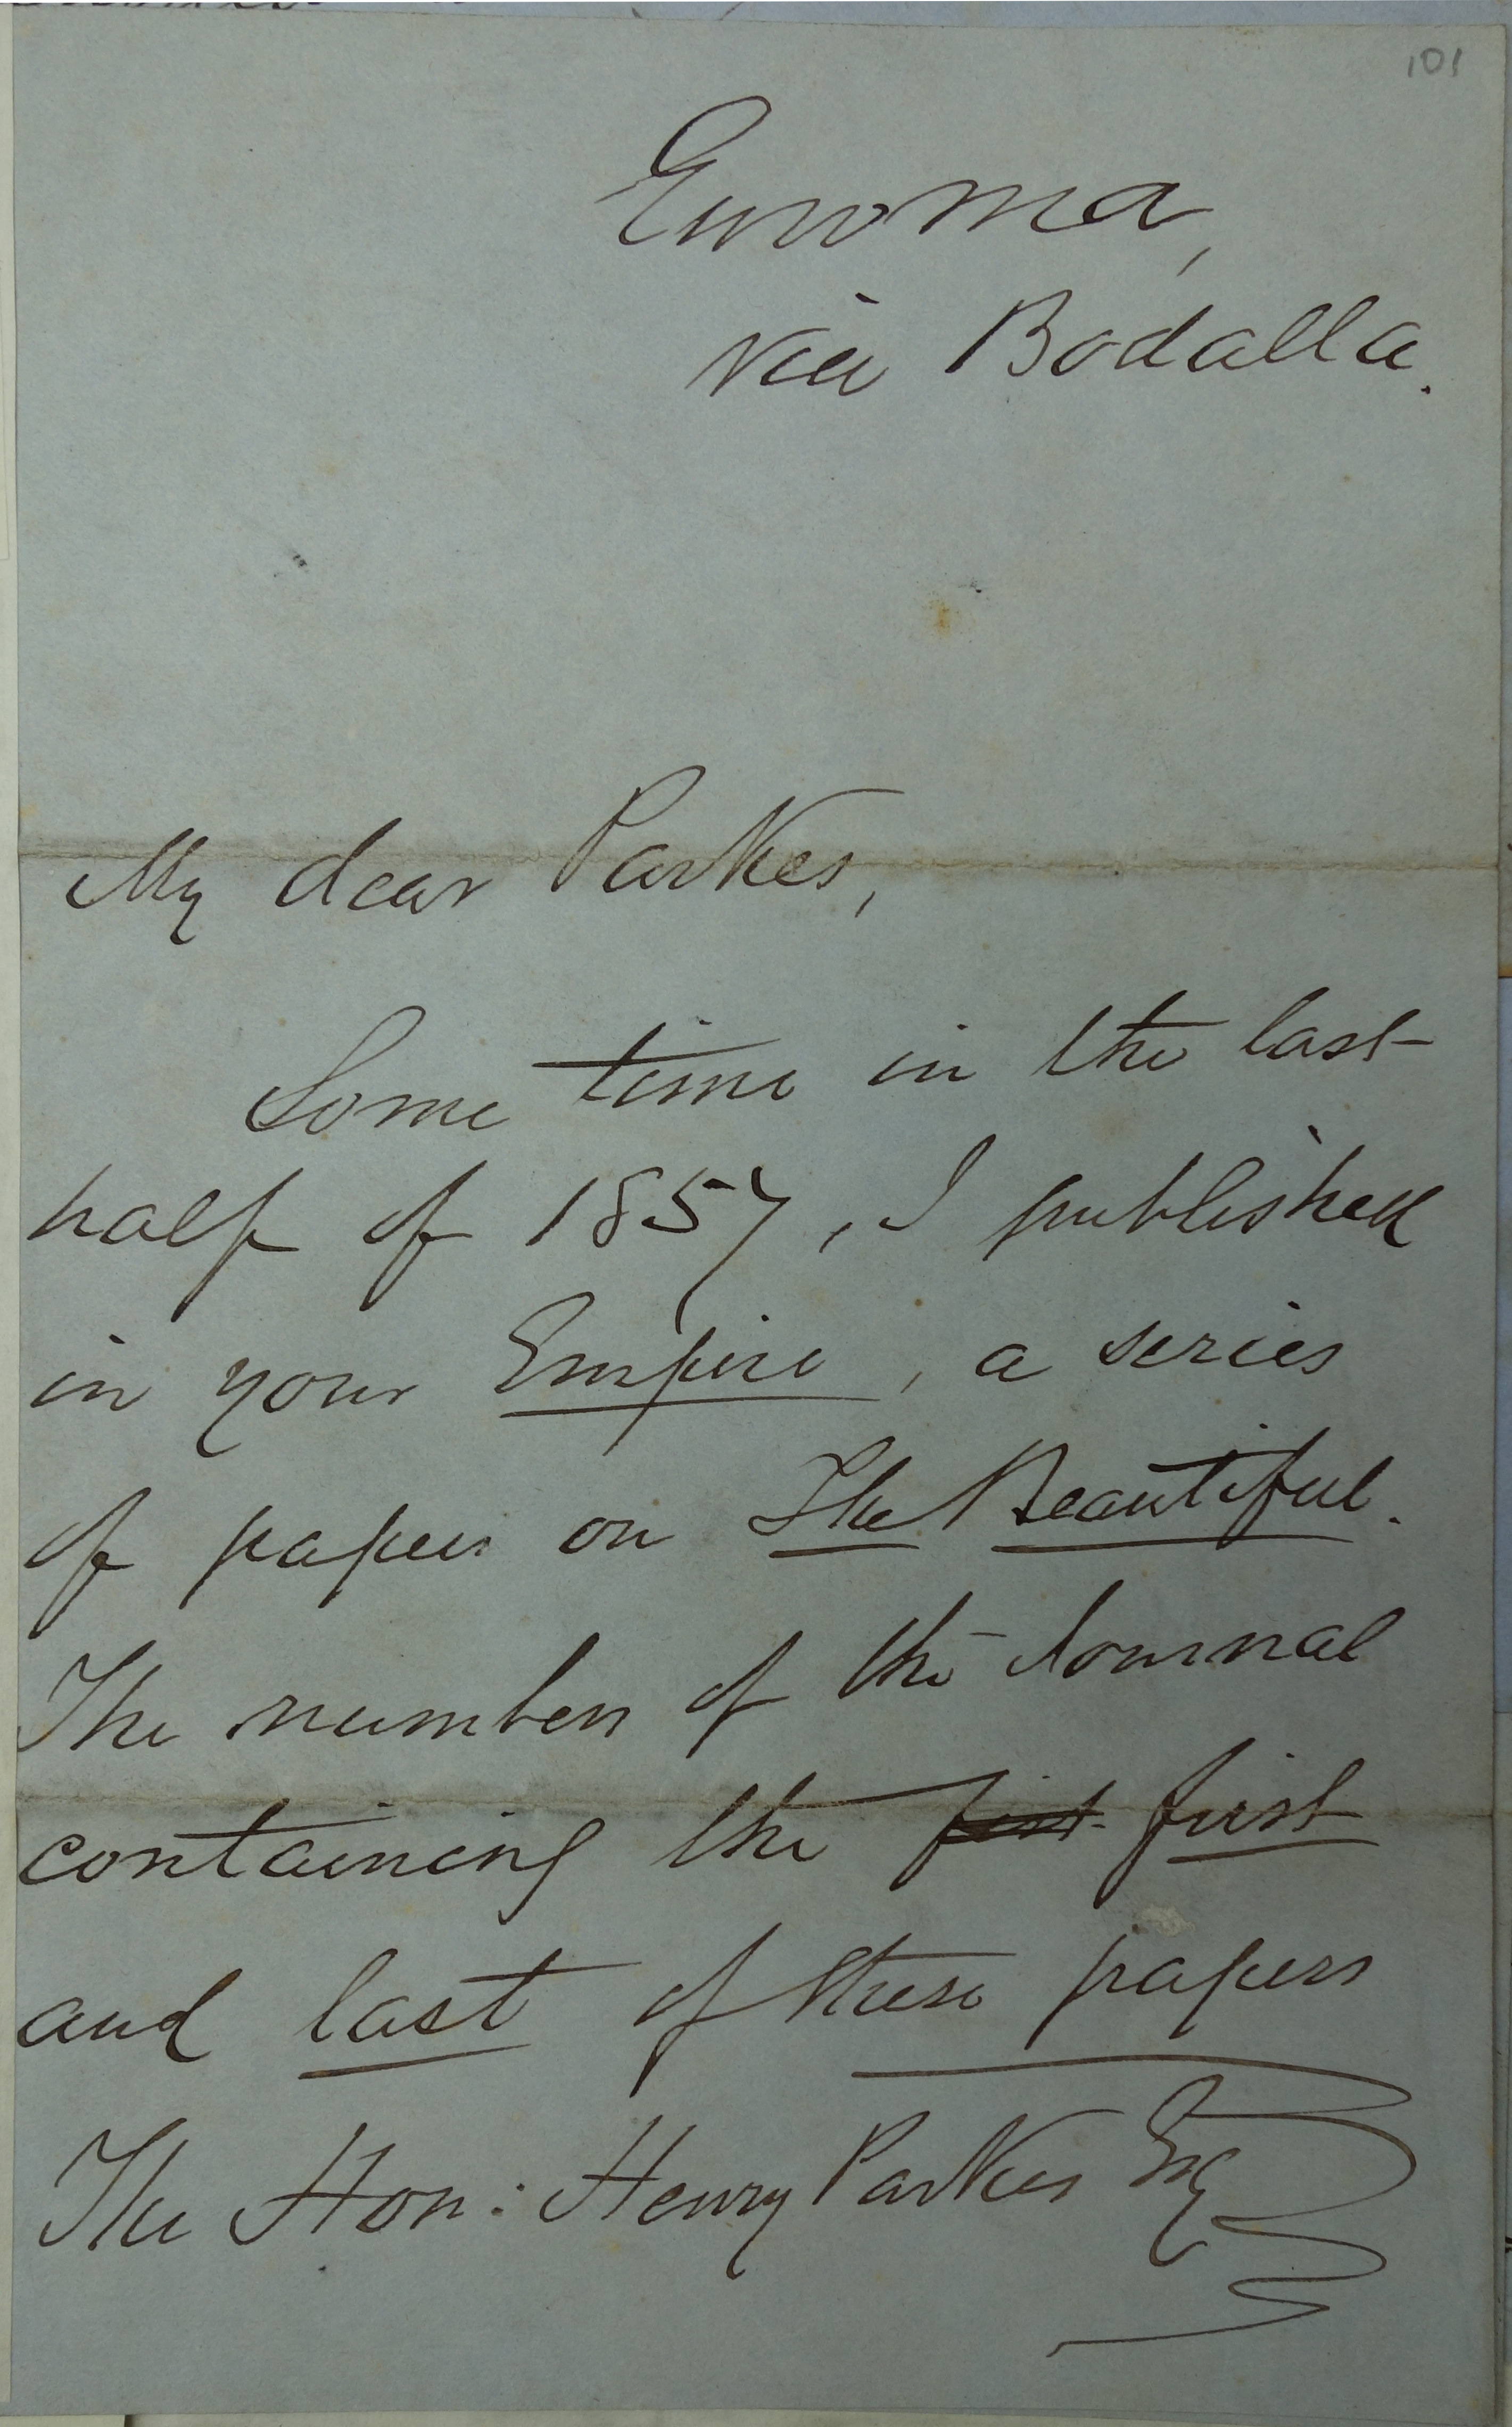 101
Euroma,
via Bodalla.
My dear Parkes,
Some time in the last
half of 1857, I published
in your Empire, a series
of papers on The Beautiful.
The number of the Journal
containing the first first
and last of these papers
The Hon: Henry Parkes Esq